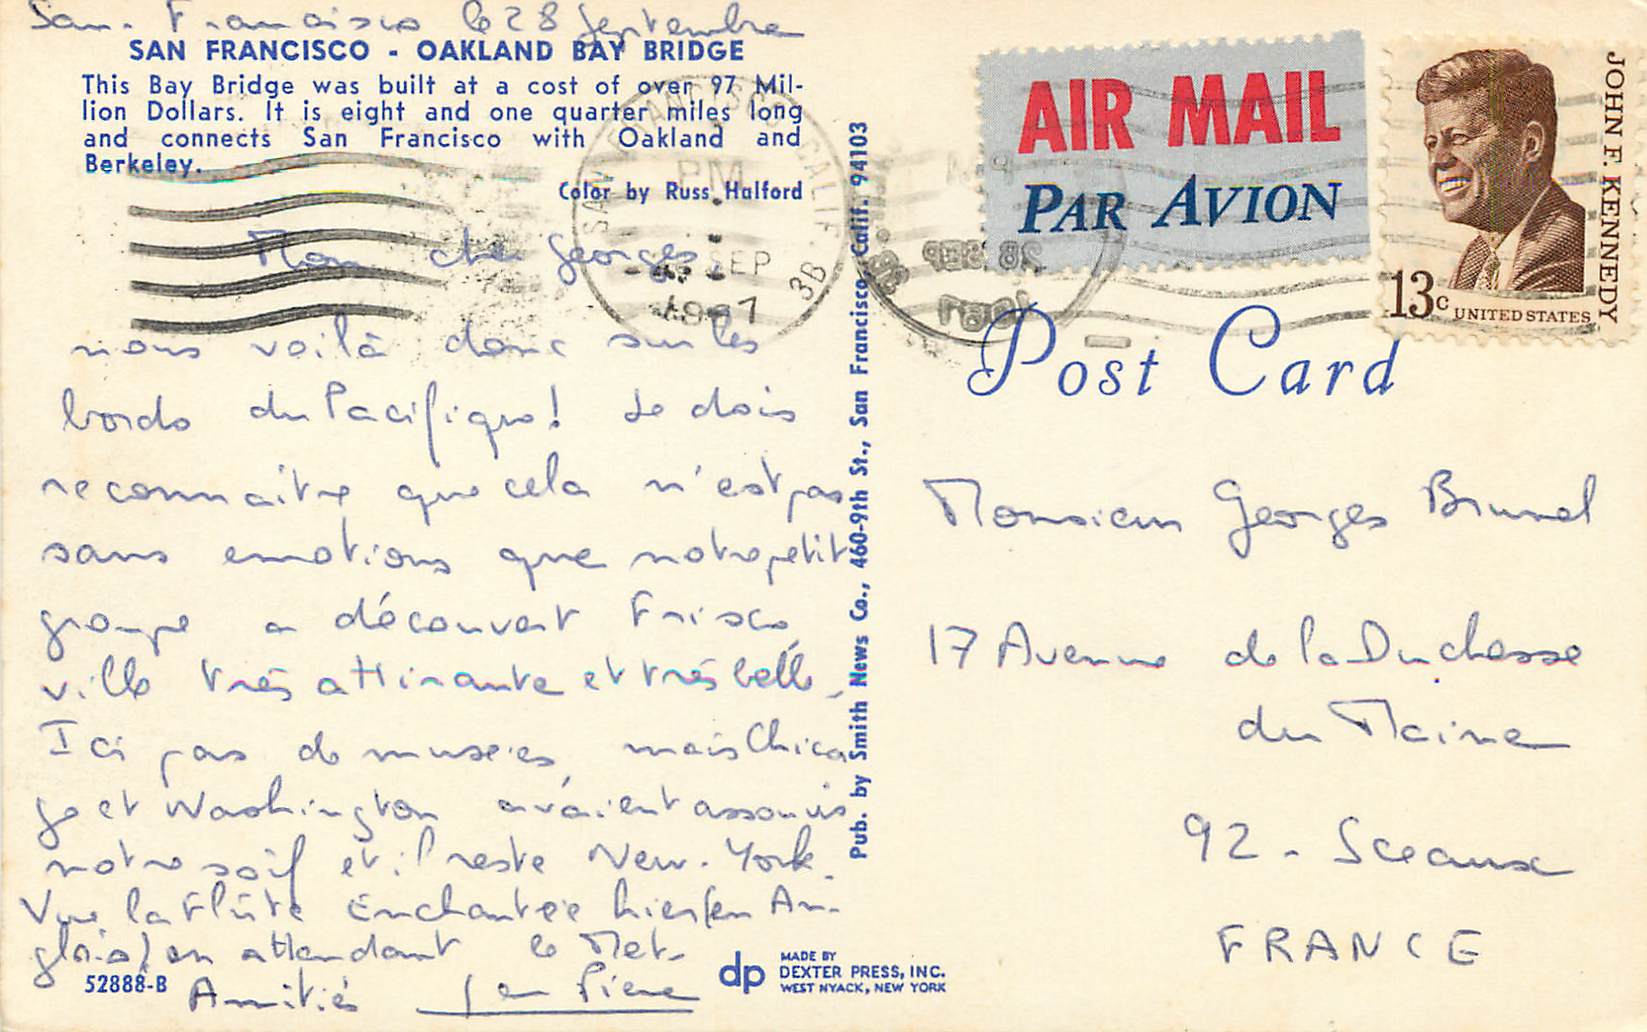 San-Francisco le 28 Septembre
SAN FRANCISCO - OAKLAND BAY BRIDGE
This Bay Bridge was built at a cost of over 97 Mil-
lion Dollars. It is eight and one quarter miles long
and connects San Francisco with Oakland and
Berkeley.
Color by Russ Halford
Mon cher Georges,
nous voilà donc sur les
bords du Pacifique! Je dois
reconnaître que cela n'est pas
sans emotions que notre petit
groupe a découvert Frisco,
ville très attirante et très belle.
Ici pas de musées, mais Chica
go et Washington avaient assouvis
notre soif et il reste New-York.
Vu la Flûte Enchantée hier (en An-
glais) en attendant le Met-
Amitiés Jean Pierre
52888-B
SAN FRANCISCO CALIF.
PM
SEP
1967
3B
Pub. by Smith News Co., 460-9th St., San Francisco, Calif. 94103
dp
MADE BY
DEXTER PRESS, INC.
WEST NYACK, NEW YORK
AIR MAIL
PAR AVION
JOHN F. KENNEDY
13c UNITED STATES
PM
28 SEP
1967
Post Card
Monsieur Georges Brunel
17 Avenue de la Duchesse
du Maine
92 - Sceaux
FRANCE